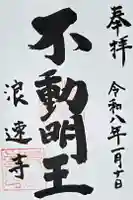 奉拝
令和八年一月十日
不動明王
浪速寺